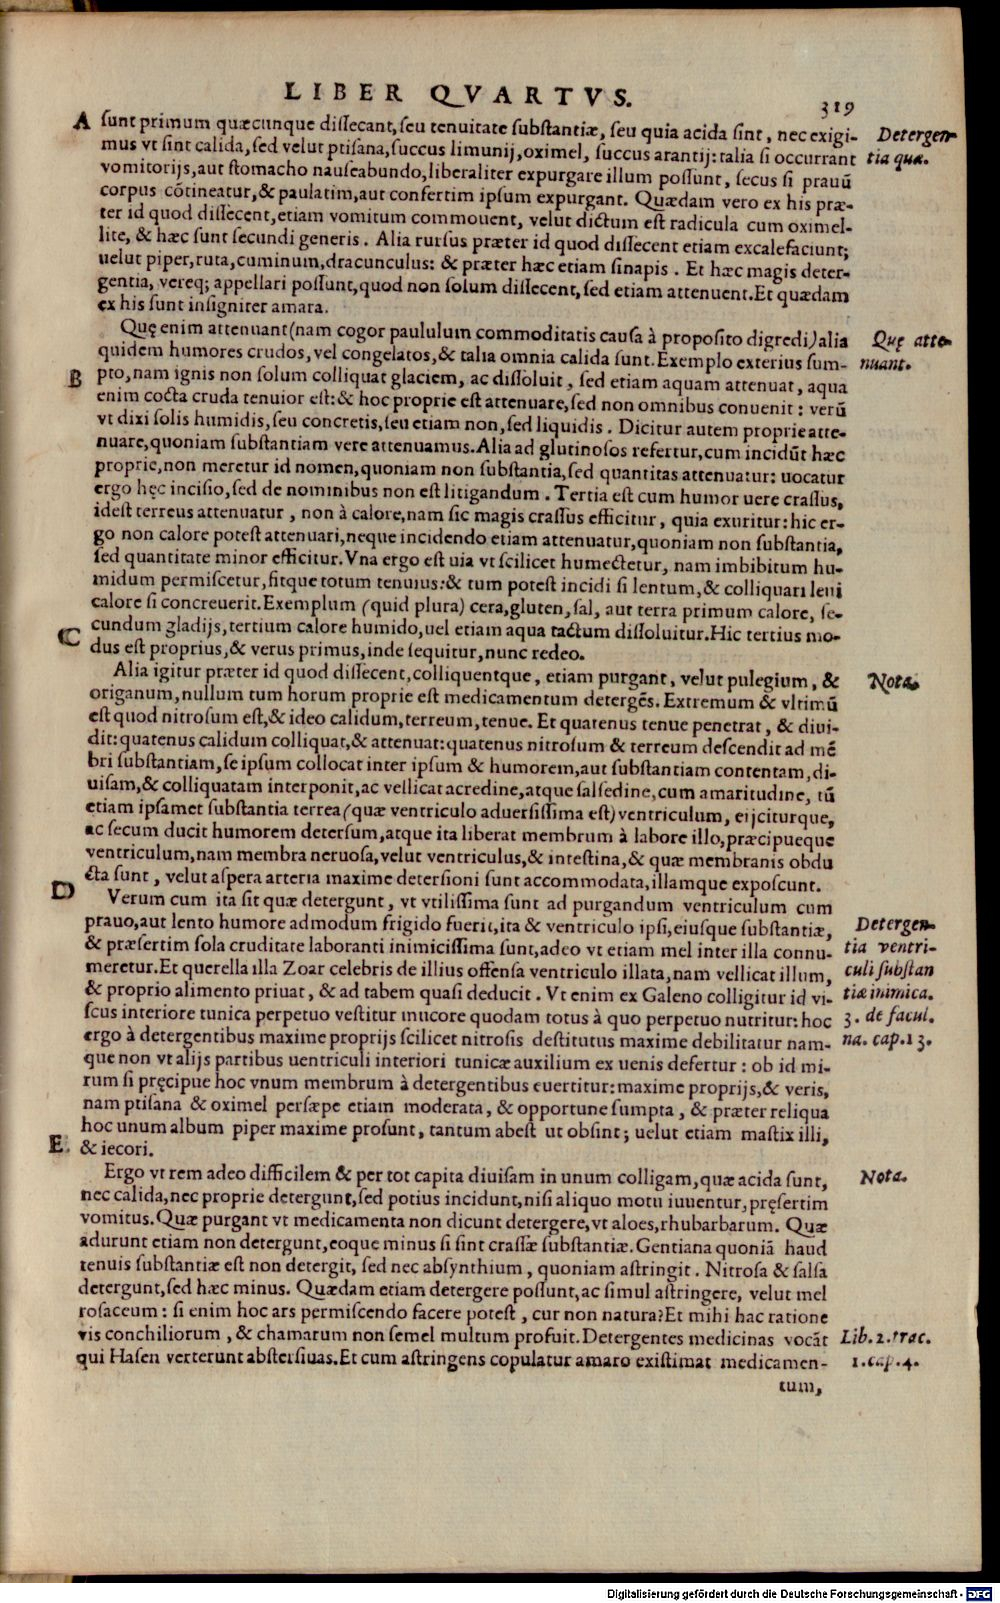 LIBER QVARTVS.
319
A sunt primum quæcunque dissecant, seu tenuitate substantiæ, seu quia acida sint, nec exigi-
Detergen-
mus vt sint calida, sed velut ptisana, succus limunij, oximel, succus arantij: talia si occurrant
tia quæ.
vomitorijs, aut stomacho nauseabundo, liberaliter expurgare illum possunt, secus si prauũ
corpus cõtineatur, & paulatim, aut confertim ipsum expurgant. Quædam vero ex his præ-
ter id quod dissecent, etiam vomitum commouent, velut dictum est radicula cum oximel-
lite, & hæc sunt secundi generis. Alia rursus præter id quod dissecent etiam excalefaciunt;
uelut piper, ruta, cuminum, dracunculus: & præter hæc etiam sinapis. Et hæc magis deter-
gentia, vereq; appellari possunt, quod non solum dissecent, sed etiam attenuent. Et quædam
ex his sunt insigniter amara.
Quę enim attenuant (nam cogor paululum commoditatis causa à proposito digredi) alia
Quę atte-
quidem humores crudos, vel congelatos, & talia omnia calida sunt. Exemplo exterius sum-
nuant.
B pto, nam ignis non solum colliquat glaciem, ac dissoluit, sed etiam aquam attenuat, aqua
enim cocta cruda tenuior est: & hoc proprie est attenuare, sed non omnibus conuenit: verũ
vt dixi solis humidis, seu concretis, seu etiam non, sed liquidis. Dicitur autem proprie atte-
nuare, quoniam substantiam vere attenuamus. Alia ad glutinosos refertur, cum incidũt hæc
proprie, non meretur id nomen, quoniam non substantia, sed quantitas attenuatur: uocatur
ergo hęc incisio, sed de nominibus non est litigandum. Tertia est cum humor uere crassus,
idest terreus attenuatur, non à calore, nam sic magis crassus efficitur, quia exuritur: hic er-
go non calore potest attenuari, neque incidendo etiam attenuatur, quoniam non substantia,
sed quantitate minor efficitur. Vna ergo est uia vt scilicet humectetur, nam imbibitum hu-
midum permiscetur, fitque totum tenuius: & tum potest incidi si lentum, & colliquari leui
calore si concreuerit. Exemplum (quid plura) cera, gluten, sal, aut terra primum calore, se-
C cundum gladijs, tertium calore humido, uel etiam aqua tactum dissoluitur. Hic tertius mo-
dus est proprius, & verus primus, inde sequitur, nunc redeo.
Alia igitur præter id quod dissecent, colliquentque, etiam purgant, velut pulegium, &
Nota.
origanum, nullum tum horum proprie est medicamentum detergẽs. Extremum & vltimũ
est quod nitrosum est, & ideo calidum, terreum, tenue. Et quatenus tenue penetrat, & diui-
dit: quatenus calidum colliquat, & attenuat: quatenus nitrosum & terreum descendit ad mẽ
bri substantiam, se ipsum collocat inter ipsum & humorem, aut substantiam contentam, di-
uisam, & colliquatam interponit, ac vellicat acredine, atque salsedine, cum amaritudine, tũ
etiam ipsamet substantia terrea (quæ ventriculo aduersissima est) ventriculum, eijciturque,
ac secum ducit humorem detersum, atque ita liberat membrum à labore illo, præcipueque
ventriculum, nam membra neruosa, velut ventriculus, & intestina, & quæ membranis obdu
cta sunt, velut aspera arteria maxime detersioni sunt accommodata, illamque exposcunt.
D Verum cum ita sit quæ detergunt, vt vtilissima sunt ad purgandum ventriculum cum
prauo, aut lento humore admodum frigido fuerit, ita & ventriculo ipsi, eiusque substantiæ,
Detergen-
& præsertim sola cruditate laboranti inimicissima sunt, adeo vt etiam mel inter illa connu-
tia ventri-
meretur. Et querella illa Zoar celebris de illius offensa ventriculo illata, nam vellicat illum,
culi substan
& proprio alimento priuat, & ad tabem quasi deducit. Vt enim ex Galeno colligitur id vi-
tiæ inimica.
scus interiore tunica perpetuo vestitur mucore quodam totus à quo perpetuo nutritur: hoc
3. de facul.
ergo à detergentibus maxime proprijs scilicet nitrosis destitutus maxime debilitatur nam-
na. cap. 13.
que non vt alijs partibus uentriculi interiori tunicæ auxilium ex uenis defertur: ob id mi-
rum si pręcipue hoc vnum membrum à detergentibus euertitur: maxime proprijs, & veris,
nam ptisana & oximel persæpe etiam moderata, & opportune sumpta, & præter reliqua
hoc unum album piper maxime prosunt, tantum abest ut obsint; uelut etiam mastix illi,
E. & iecori.
Ergo vt rem adeo difficilem & per tot capita diuisam in unum colligam, quæ acida sunt,
Nota.
nec calida, nec proprie detergunt, sed potius incidunt, nisi aliquo motu iuuentur, pręsertim
vomitus. Quæ purgant vt medicamenta non dicunt detergere, vt aloes, rhubarbarum. Quæ
adurunt etiam non detergunt, eoque minus si sint crassæ substantiæ. Gentiana quoniã haud
tenuis substantiæ est non detergit, sed nec absynthium, quoniam astringit. Nitrosa & salsa
detergunt, sed hæc minus. Quædam etiam detergere possunt, ac simul astringere, velut mel
rosaceum: si enim hoc ars permiscendo facere potest, cur non natura? Et mihi hac ratione
vis conchiliorum, & chamarum non semel multum profuit. Detergentes medicinas vocãt
Lib. 2. trac.
qui Hasen verterunt abstersiuas. Et cum astringens copulatur amaro existimat medicamen-
1. cap. 4.
tum,
Digitalisierung gefördert durch die Deutsche Forschungsgemeinschaft - DFG